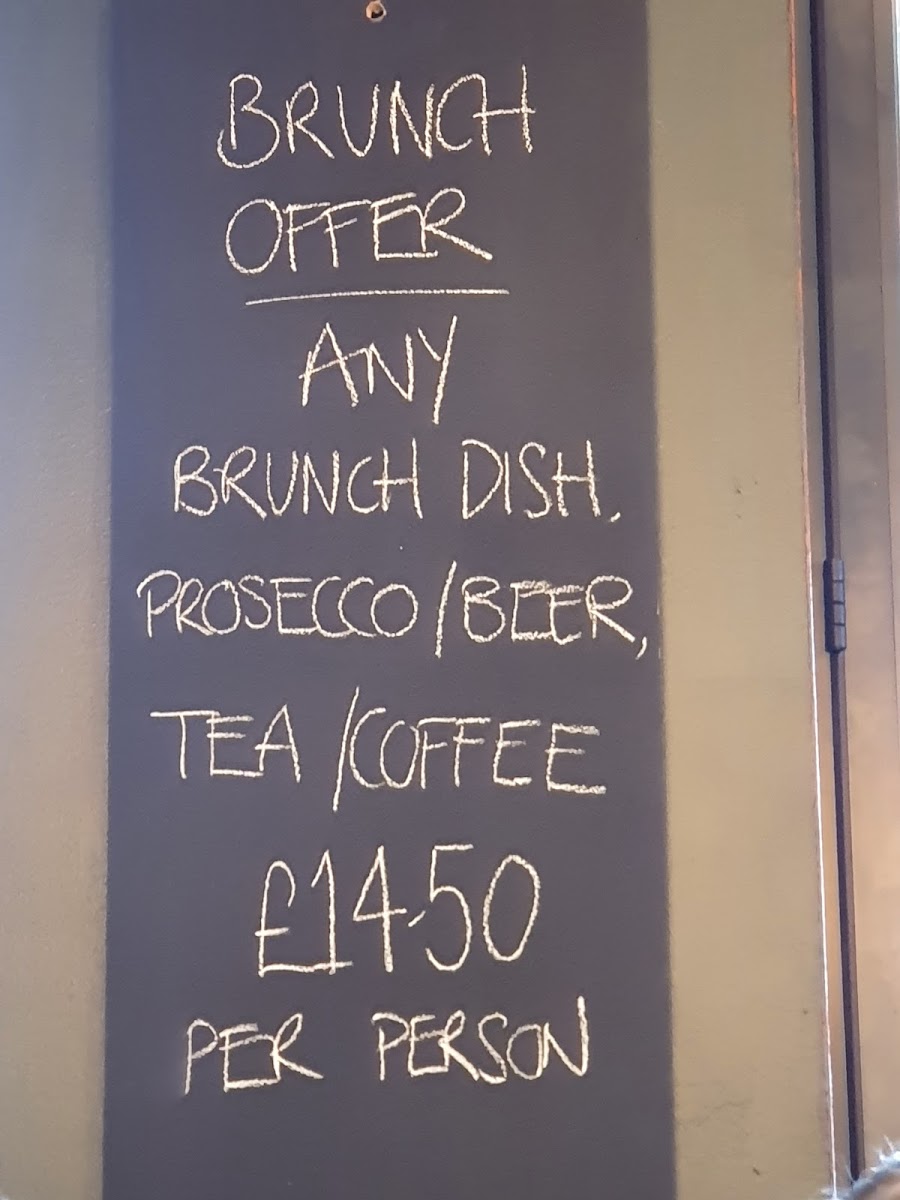 BRUNCH
OFFER
ANY
BRUNCH DISH,
PROSECCO/BEER,
TEA/COFFEE
£14.50
PER PERSON